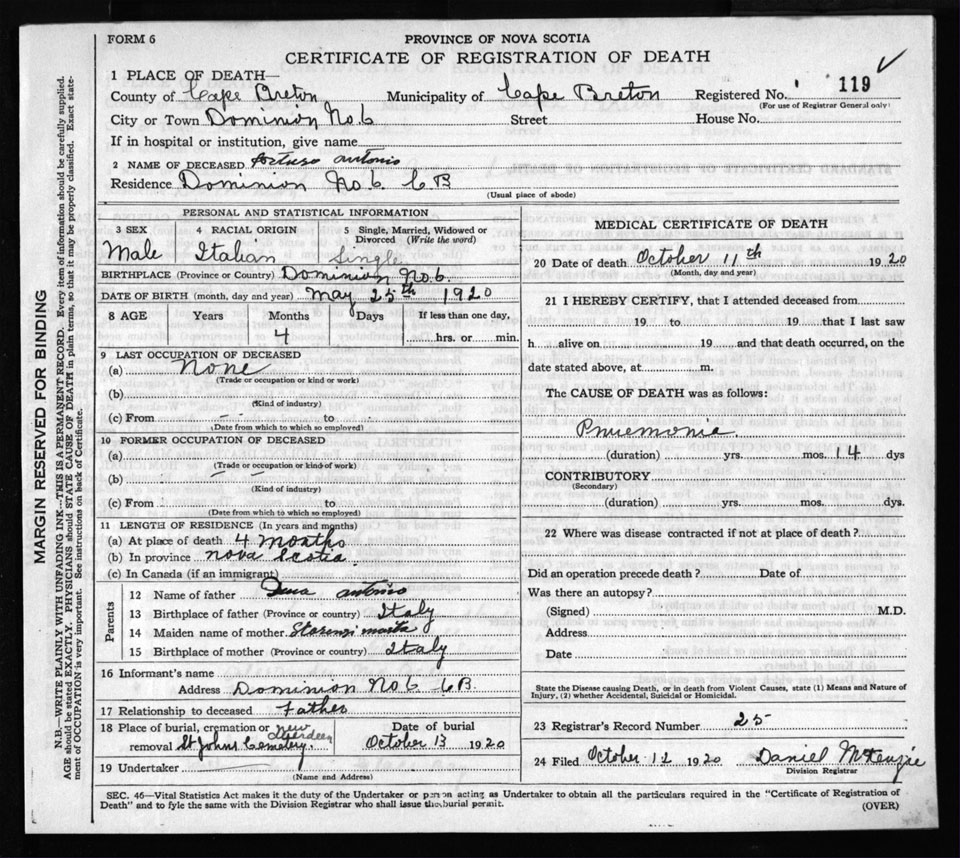 FORM 6
PROVINCE OF NOVA SCOTIA
CERTIFICATE OF REGISTRATION OF DEATH
1 PLACE OF DEATH—
County of Cape Breton Municipality of Cape Breton Registered No. 119
(For use of Registrar General only)
City or Town Dominion No. 6 Street House No.
If in hospital or institution, give name
2 NAME OF DECEASED Antonio
Residence Dominion No 6 C B
(Usual place of abode)
PERSONAL AND STATISTICAL INFORMATION
3 SEX 4 RACIAL ORIGIN 5 Single, Married, Widowed or Divorced (Write the word)
Male Italian Single
BIRTHPLACE (Province or Country) Dominion No. 6.
DATE OF BIRTH (month, day and year) May 25th 1920
8 AGE Years Months Days If less than one day,
4 hrs. or min.
9 LAST OCCUPATION OF DECEASED
(a) None
(Trade or occupation or kind or work)
(b)
(Kind of industry)
(c) From to
(Date from which to which so employed)
10 FORMER OCCUPATION OF DECEASED
(a)
(Trade or occupation or kind of work)
(b)
(Kind of industry)
(c) From to
(Date from which to which so employed)
11 LENGTH OF RESIDENCE (In years and months)
(a) At place of death 4 Months
(b) In province Nova Scotia.
(c) In Canada (if an immigrant)
Parents
12 Name of father Antonio
13 Birthplace of father (Province or country) Italy
14 Maiden name of mother
15 Birthplace of mother (Province or country) Italy
16 Informant's name
Address Dominion No 6 CB.
17 Relationship to deceased Father
18 Place of burial, cremation or New Aberdeen
removal St Johns Cemetery. Date of burial October 13 1920
19 Undertaker
(Name and Address)
MEDICAL CERTIFICATE OF DEATH
20 Date of death October 11th 1920
(Month, day and year)
21 I HEREBY CERTIFY, that I attended deceased from
19 to 19 that I last saw
h alive on 19 and that death occurred, on the
date stated above, at m.
The CAUSE OF DEATH was as follows:
Pnuemonia.
(duration) yrs. mos. 14 dys
CONTRIBUTORY
(Secondary)
(duration) yrs. mos. dys.
22 Where was disease contracted if not at place of death?
Did an operation precede death? Date of
Was there an autopsy?
(Signed) M.D.
Address
Date
State the Disease causing Death, or in death from Violent Causes, state (1) Means and Nature of
Injury, (2) whether Accidental, Suicidal or Homicidal.
23 Registrar's Record Number 25
24 Filed October 12 1920 Daniel McKenzie
Division Registrar
SEC. 46—Vital Statistics Act makes it the duty of the Undertaker or person acting as Undertaker to obtain all the particulars required in the "Certificate of Registration of
Death" and to fyle the same with the Division Registrar who shall issue the burial permit.
(OVER)
MARGIN RESERVED FOR BINDING
N.B.—WRITE PLAINLY WITH UNFADING INK—THIS IS A PERMANENT RECORD. Every item of information should be carefully supplied.
AGE should be stated EXACTLY. PHYSICIANS should STATE CAUSE OF DEATH in plain terms, so that it may be properly classified. Exact state-
ment of OCCUPATION is very important. See instructions on back of Certificate.